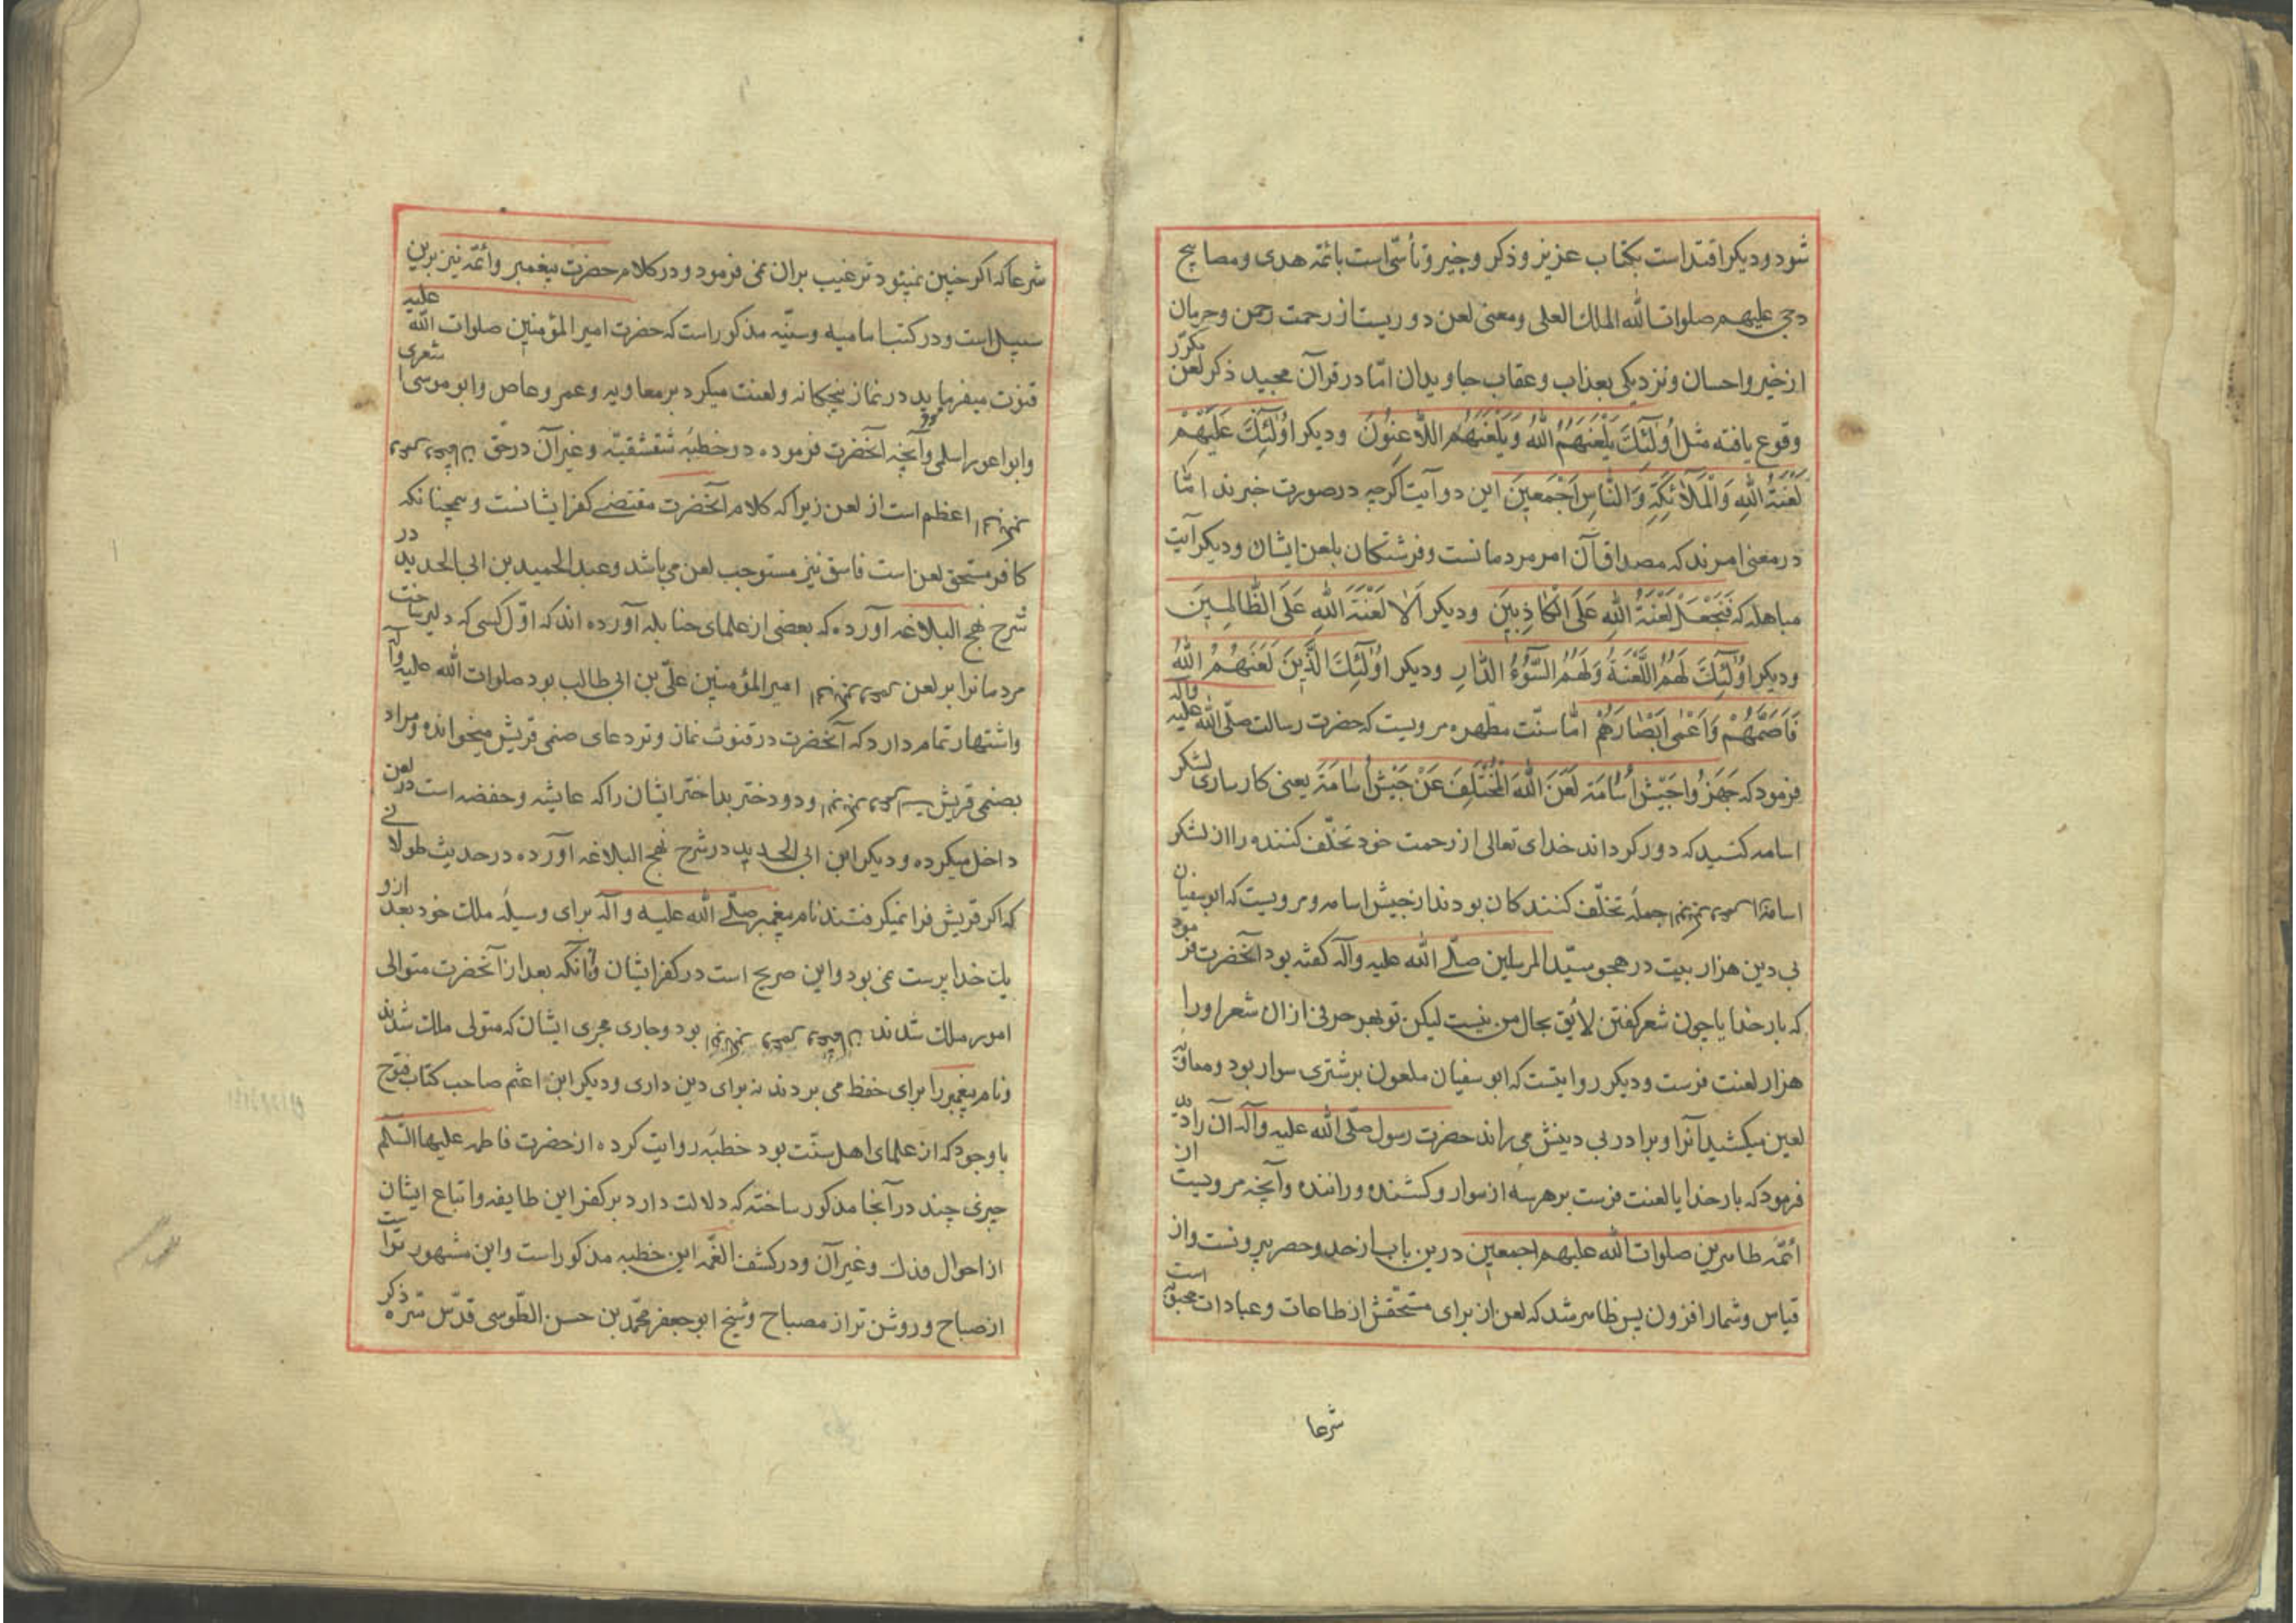 شود و دیکر اقتداست بکتاب عزیز و ذکر وجیز و تأسّی است بائمّه هدی و مصابیح
دجی علیهم صلوات الله الملک العلی و معنی لعن دوریست از رحمت رحمن و حرمان
از خیر و احسان و نزدیکی بعذاب و عقاب جاویدان امّا در قرآن مجید ذکر لعن مکرّر
وقوع یافته مثل اُولٰٓئِکَ یَلْعَنُهُمُ اللّٰهُ وَیَلْعَنُهُمُ اللّاعِنُونَ و دیکر اُولٰٓئِکَ عَلَیْهِمْ
لَعْنَةُ اللّٰهِ وَالْمَلٰٓائِکَةِ وَالنّاسِ اَجْمَعینَ این دو آیت اکرچه در صورت خبرند امّا
در معنی امرند که مصداق آن امر مردمانست و فرشتکان بلعن ایشان و دیکر آیت
مباهله که فَنَجْعَلْ لَعْنَةَ اللّٰهِ عَلَی الْکاذِبینَ و دیکر اَلا لَعْنَةُ اللّٰهِ عَلَی الظّالِمینَ
و دیکر اُولٰٓئِکَ لَهُمُ اللَّعْنَةُ وَلَهُمْ السُّوٓءُ الدّارِ و دیکر اُولٰٓئِکَ الَّذینَ لَعَنَهُمُ اللّٰهُ
فَاَصَمَّهُمْ وَاَعْمٰی اَبْصارَهُمْ امّا سنّت مطهره مرویست که حضرت رسالت صلّی الله علیه وآله
فرمود که جَهِّزُوا جَیْشَ اُسامَةَ لَعَنَ اللّٰهُ الْمُتَخَلِّفَ عَنْ جَیْشِ اُسامَةَ یعنی کارسازی لشکر
اسامه کنید که دور کرداند خدای تعالی از رحمت خود تخلّف کننده را از لشکر
اسامه جمله تخلّف کنندکان بودند از جیش اسامه و مرویست که ابو سفیان
بی دین هزار بیت در هجو سیّد المرسلین صلّی الله علیه وآله کفته بود آنحضرت فرمود
که بار خدایا چون شعر کفتن لایق بحال من نیست لیکن تو بهر حرفی از ان شعر او را
هزار لعنت فرست و دیکر روایتست که ابو سفیان ملعون بر شتری سوار بود و معاویه
لعین میکشید آنرا و برادر بی دینش می راند حضرت رسول صلّی الله علیه وآله آن را دید
فرمود که بار خدایا لعنت فرست بر هر سه از سوار و کشنده و راننده و آنچه مرویست از
ائمّه طاهرین صلوات الله علیهم اجمعین درین باب از حد و حصر بیرونست و از
قیاس و شمار افزون پس ظاهر شد که لعن از برای مستحقّش از طاعات و عبادات است
شرعا
شرعا که اکر چنین نمیبود ترغیب بران نمی فرمود و در کلام حضرت پیغمبر و ائمّه نیز برین
سبیل است و در کتب امامیه و سنّیه مذکور است که حضرت امیر المؤمنین صلوات الله علیه
قنوت میفرماید در نماز پنجکانه و لعنت میکرد بر معاویه و عمر و عاص و ابو موسی اشعری
و ابو اعور اسلمی و آنچه آنحضرت فرموده در خطبه شقشقیّه و غیر آن در حقّ
اعظم است از لعن زیرا که کلام آنحضرت مقتضی کفر ایشانست و همچنانکه
کافر مستحق لعن است فاسق نیز مستوجب لعن می باشد و عبد الحمید بن ابی الحدید در
شرح نهج البلاغه آورده که بعضی از علمای حنابله آورده اند که اوّل کسی که دلیر ساخت
مردمانرا بر لعن امیر المؤمنین علیّ بن ابی طالب بود صلوات الله علیه وآله
و اشتهار تمام دارد که آنحضرت در قنوت نماز وتر دعای صنمی قریش میخوانده و مراد
بصنمی قریش و دو دختر بد اختر ایشان را که عایشه و حفصه است در لعن
داخل میکرده و دیکر ابن ابی الحدید در شرح نهج البلاغه آورده در حدیث طولانی
که اکر قریش فرا نمیکرفتند نام پیغمبر صلّی الله علیه وآله برای وسیله ملک خود بعد ازو
یک خدا پرست نمی بود و این صریح است در کفر ایشان و آنکه بعد از آنحضرت متوالی
امور ملک شدند بود و جاری مجری ایشان که متولی ملک شدند
و نام پیغمبر را برای حفظ می بردند نه برای دین داری و دیکر ابن اعثم صاحب کتاب فتوح
با وجود که از علمای اهل سنّت بود خطبه روایت کرده از حضرت فاطمه علیها السّلم
چیزی چند در آنجا مذکور ساخته که دلالت دارد بر کفر این طایفه و اتباع ایشان
از احوال فدک و غیر آن و در کشف الغمّه این خطبه مذکور است و این مشهور تراست
از صباح و روشن تر از مصباح و شیخ ابو جعفر محمّد بن حسن الطّوسی قدّس سرّه ذکر